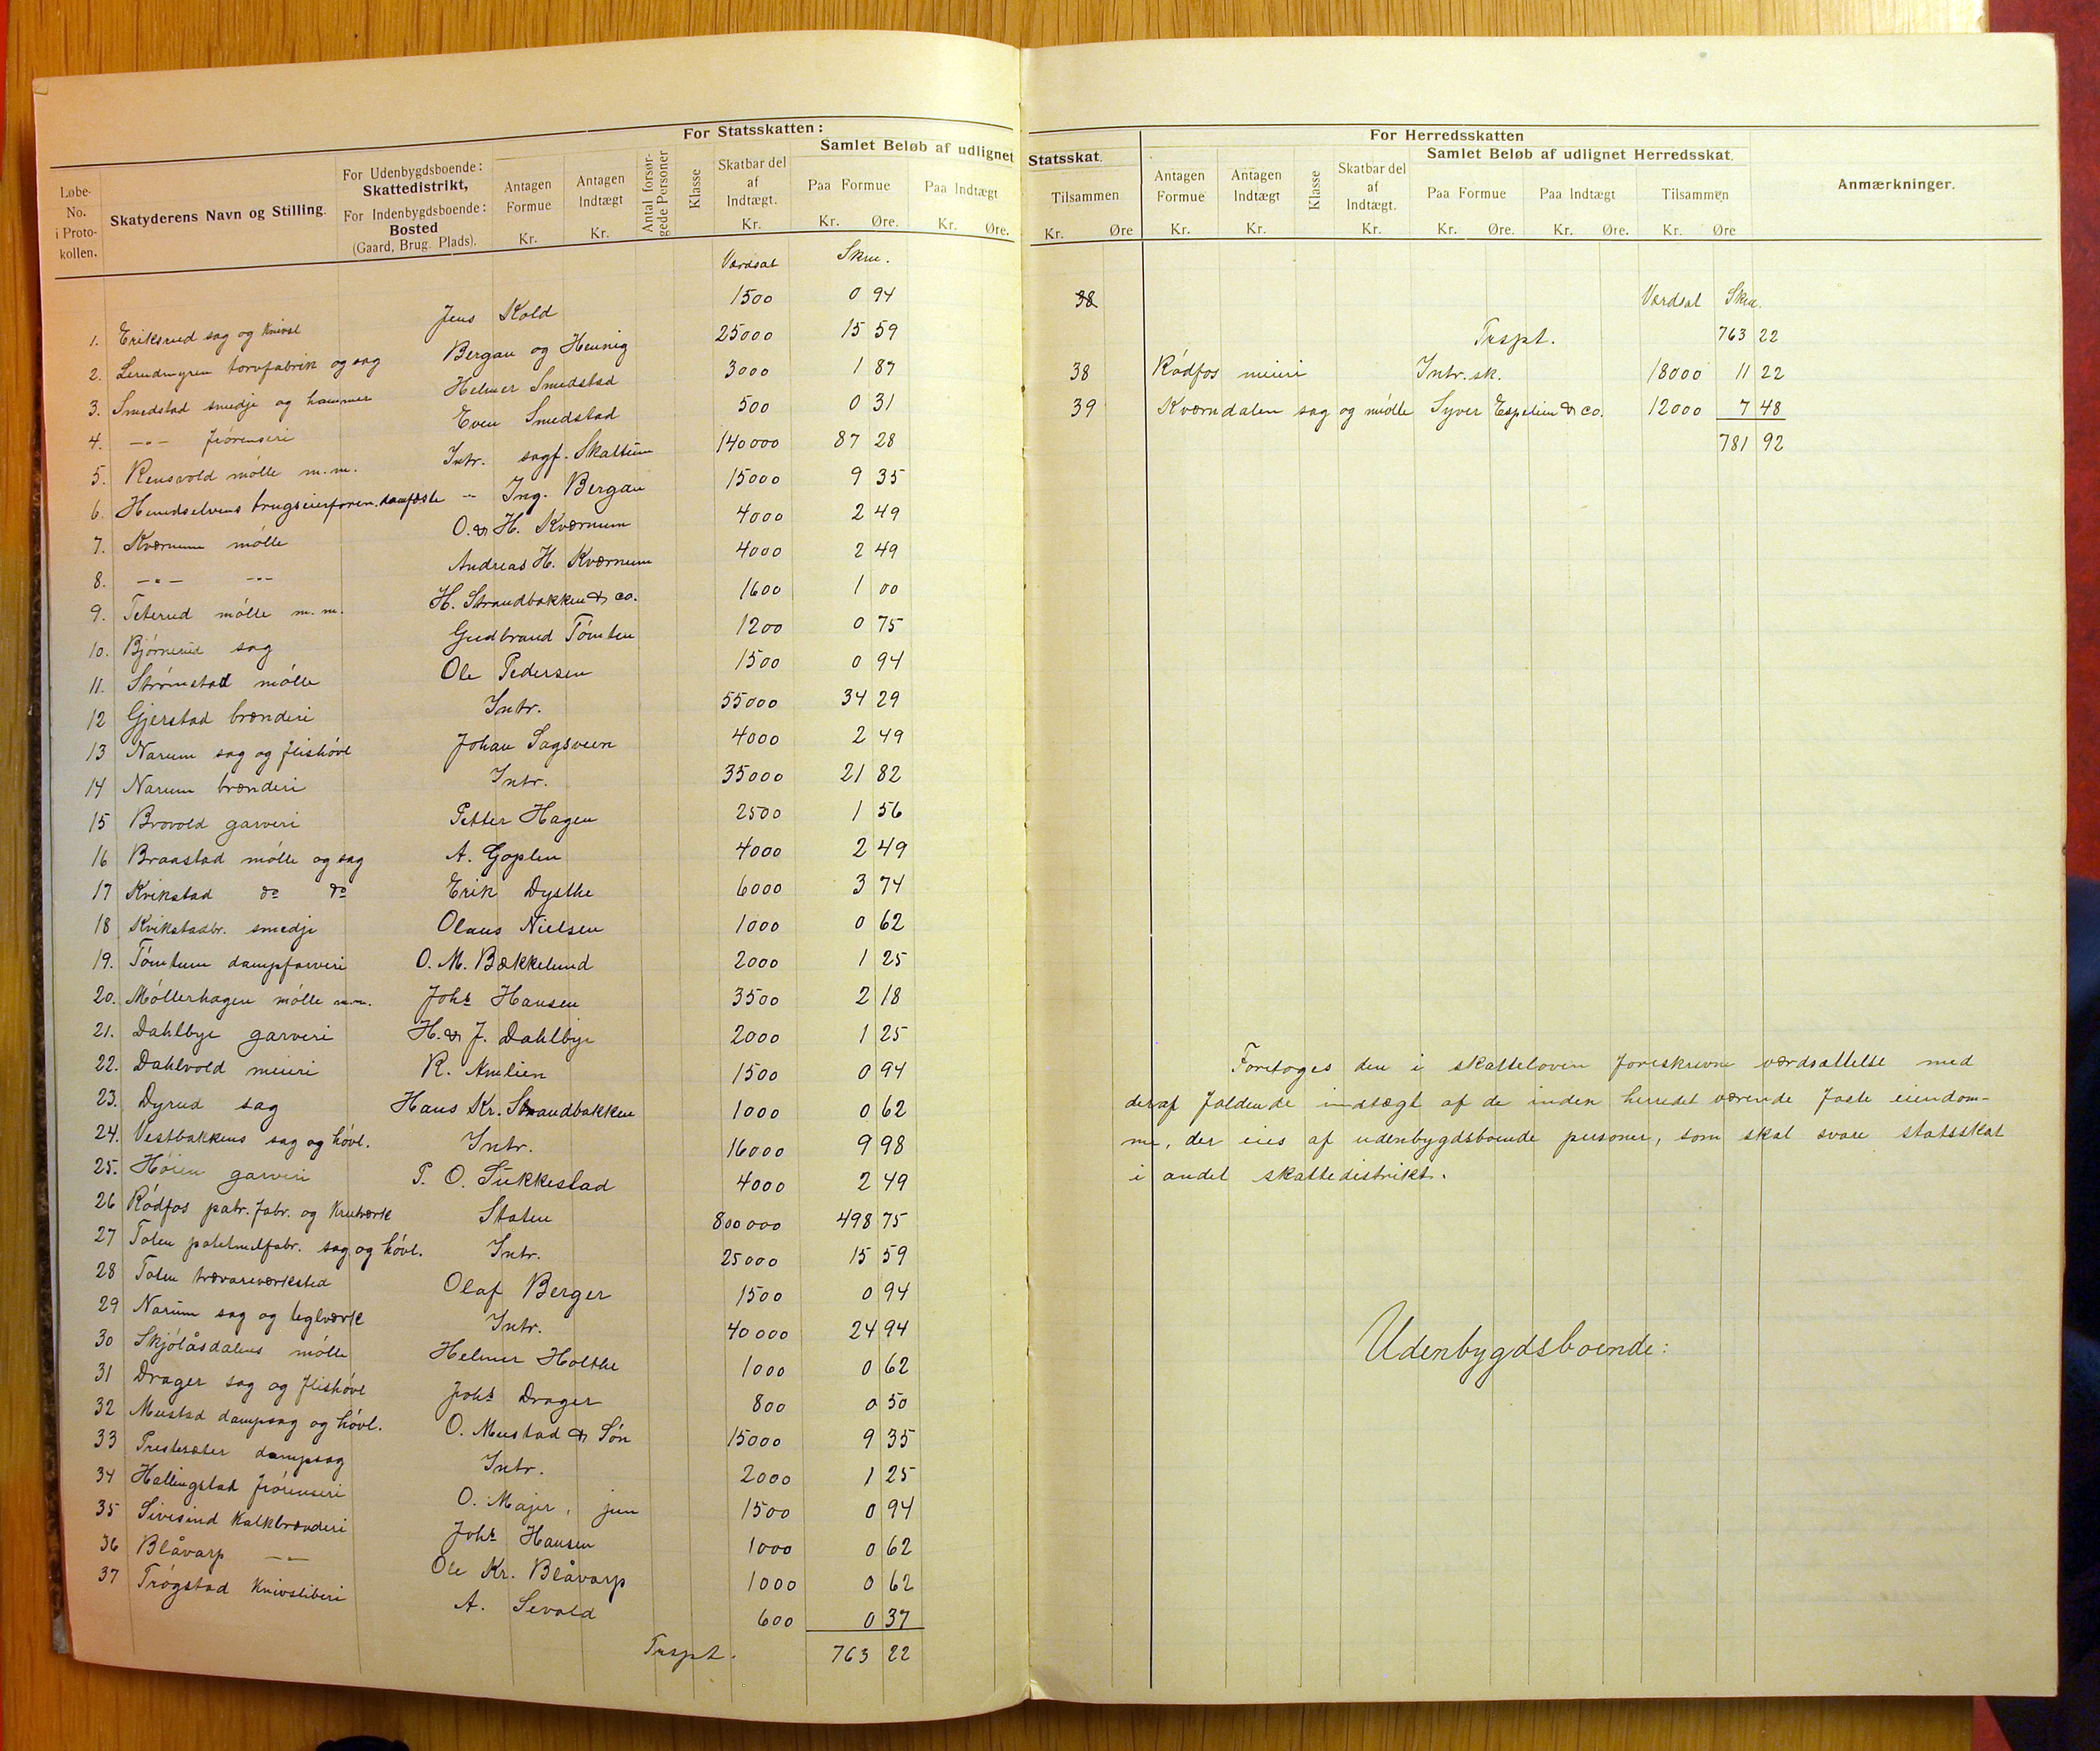 For Statsskatten:
Løbe-No. i Proto-kollen.
Skatyderens Navn og Stilling.
For Udenbygdsboende: Skattedistrikt, For Indenbygdsboende: Bosted (Gaard, Brug. Plads).
Antagen Formue Kr.
Antagen Indtægt Kr.
Antal forsør-gede Personer
Klasse
Skatbar del af Indtægt. Kr.
Samlet Beløb af udlignet
Paa Formue Kr. Øre.
Paa Indtægt Kr. Øre.
Værdsat Skm.
1. Eriksrud sag og knivsl Jens Kold 1500 0 94
2. Lerudmyren torvfabrik og sag Bergau og Hennig 25000 15 59
3. Smedstad smedje og hammer Helmer Smedstad 3000 1 87
4. -"- frörenseri Even Smedstad 500 0 31
5. Rensvold mölle m.m. Intr. sagf. Skattum 140000 87 28
6. Hunnselvens brugseierforen. damfæste " Ing. Bergau 15000 9 35
7. Kværnum mölle O. & H. Kværnum 4000 2 49
8. -"- -"- Andreas H. Kværnum 4000 2 49
9. Teterud mölle m.m. H. Strandbakken & co. 1600 1 00
10. Bjørnerud sag Gudbrand Tömten 1200 0 75
11. Strömstad mölle Ole Pedersen 1500 0 94
12 Gjerstad brænderi Intr. 55000 34 29
13 Narum sag og flishövl Johan Sagsveen 4000 2 49
14 Narum brænderi Intr. 35000 21 82
15 Brovold garveri Petter Hagen 2500 1 56
16 Braastad mölle og sag A. Goplen 4000 2 49
17 Kvikstad do do Erik Dysthe 6000 3 74
18 Kvikstadbr. smedje Olaus Nielsen 1000 0 62
19. Tömtum dampfarveri O. M. Bækkelund 2000 1 25
20. Möllerhagen mölle m.m. Johs Hansen 3500 2 18
21. Dahlbye garveri H. & J. Dahlbye 2000 1 25
22. Dahlvold meieri R. Amlien 1500 0 94
23. Dyrud sag Hans Kr. Strandbakken 1000 0 62
24. Vestbakkens sag og hövl. Intr. 16000 9 98
25. Höien garveri P. O. Sukkestad 4000 2 49
26 Rödfos patr. fabr. og kruttværk Staten 800000 498 75
27 Toten potetmelfabr. sag og hövl. Intr. 25000 15 59
28 Toten trævareværksted Olaf Berger 1500 0 94
29 Narum sag og teglværk Intr. 40000 24 94
30 Skjölåsdalens mölle Helmer Holthe 1000 0 62
31 Drager sag og flishövl Johs Drager 800 0 50
32 Mustad dampsag og hövl. O. Mustad & Sön 15000 9 35
33 Prestesæter dampsag Intr. 2000 1 25
34 Hallingstad frörenseri O. Majer, jun 1500 0 94
35 Sivesind kalkbrænderi Johs Hansen 1000 0 62
36 Blåvarp -"- Ole Kr. Blåvarp 1000 0 62
37 Trögstad knivsliberi A. Sevald 600 0 37
Trspt. 763 22
Statsskat.
Tilsammen Kr. Øre
For Herredsskatten
Antagen Formue Kr.
Antagen Indtægt Kr.
Klasse
Skatbar del af Indtægt. Kr.
Samlet Beløb af udlignet Herredsskat.
Paa Formue Kr. Øre.
Paa Indtægt Kr. Øre.
Tilsammen Kr. Øre
Anmærkninger.
38 Værdsat Skm.
Trspt. 763 22
38 Rödfos meieri Intr. sk. 18000 11 22
39 Kværndalen sag og mölle Syver Espelien & co. 12000 7 48
781 92
Foretoges den i skatteloven foreskrevne værdsættelse med
deraf faldende indtægt af de inden herredet værende faste eiendom-
me, der eies af udenbygdsboende personer, som skal svare statsskat
i andet skattedistrikt.
Udenbygdsboende: